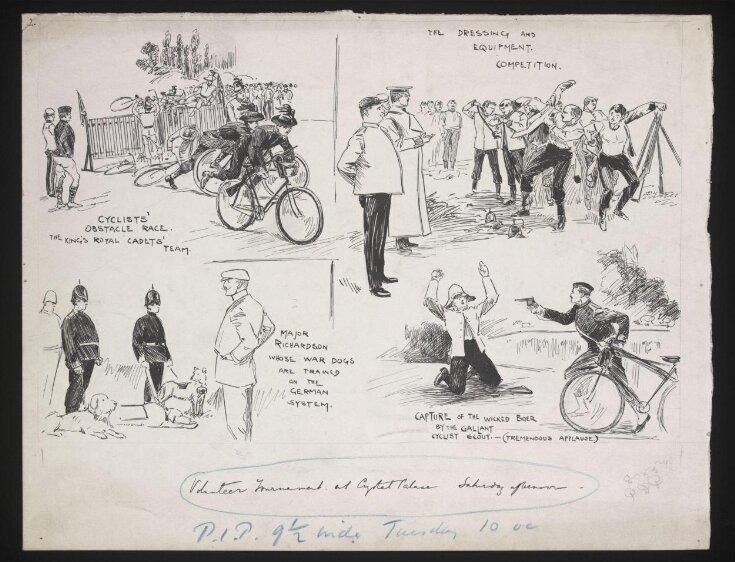 2.
THE DRESSING AND
EQUIPMENT.
COMPETITION.
CYCLISTS'
OBSTACLE RACE.
THE KING'S ROYAL CADETS'
TEAM.
MAJOR
RICHARDSON
WHOSE WAR DOGS
ARE TRAINED
ON THE
GERMAN
SYSTEM.
CAPTURE OF THE WICKED BOER
BY THE GALLANT
CYCLIST SCOUT. — (TREMENDOUS APPLAUSE)
Volunteer Tournament at Crystal Palace Saturday afternoon.
P.I.P. 9½ wide Tuesday 10 oc